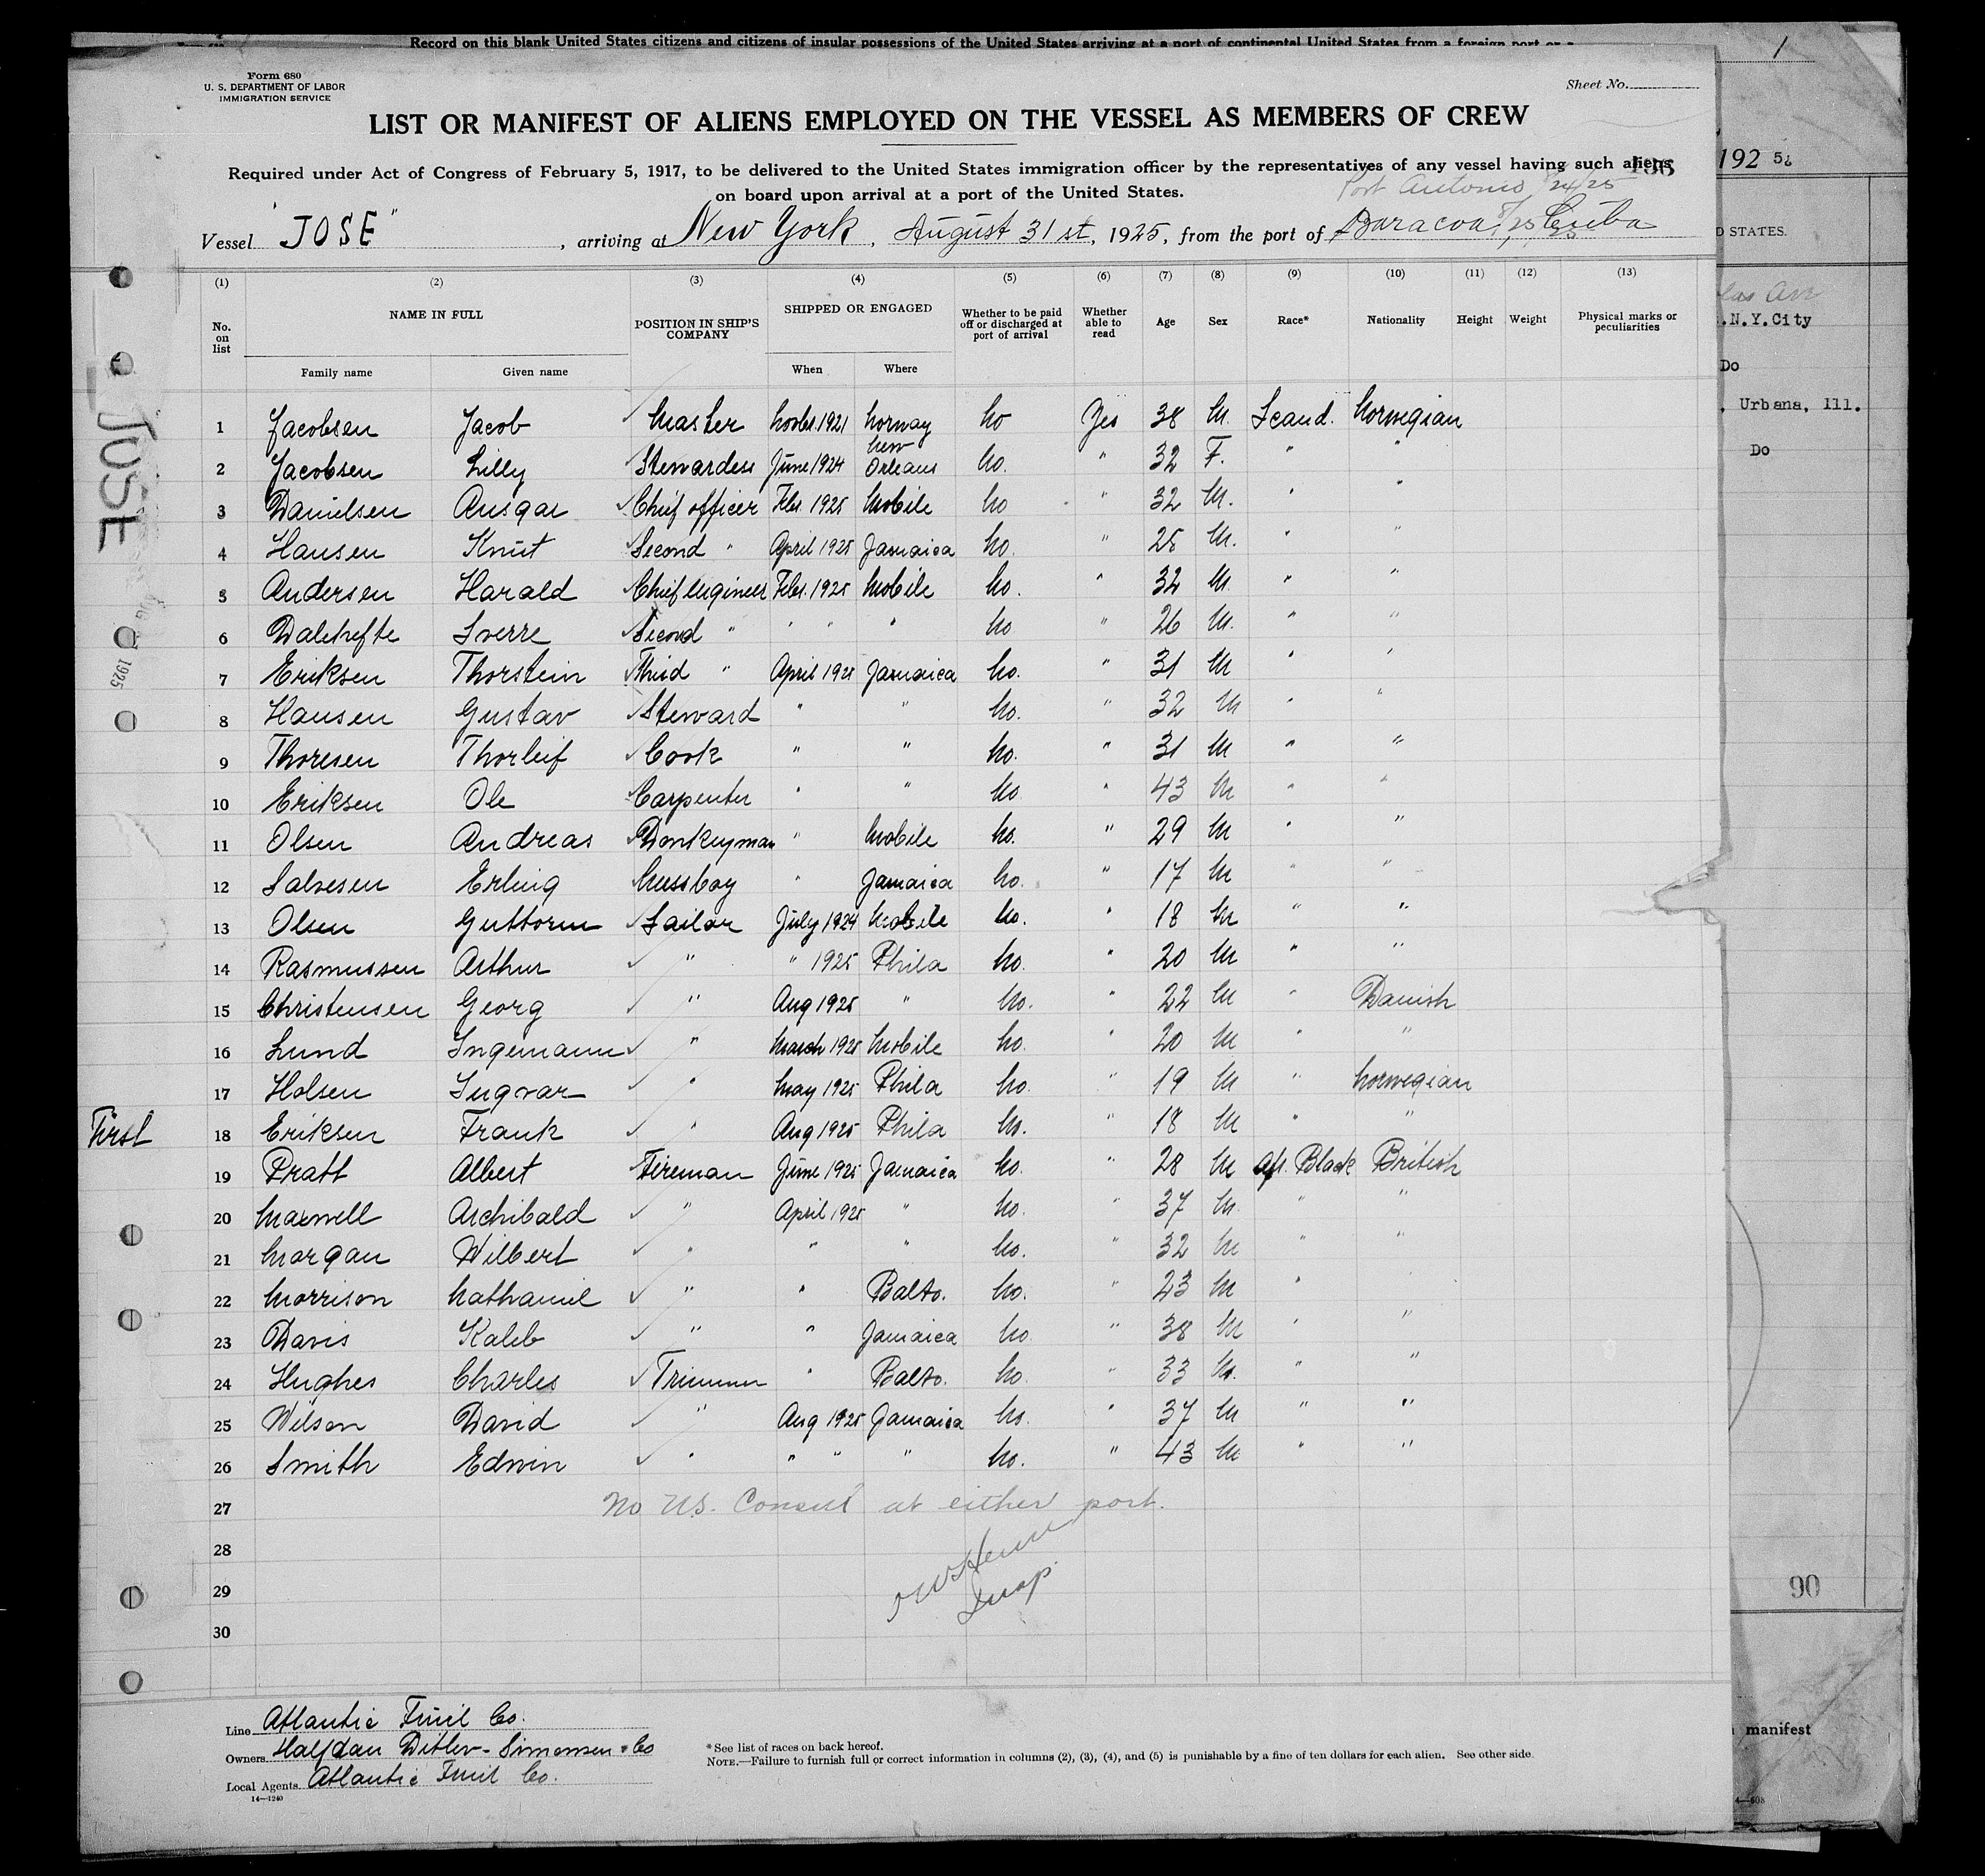 Record on this blank United States citizens and citizens of insular possessions of the United States arriving at a port of continental United States from a foreign port or a
1
Form 680
U. S. DEPARTMENT OF LABOR
IMMIGRATION SERVICE
Sheet No.
LIST OR MANIFEST OF ALIENS EMPLOYED ON THE VESSEL AS MEMBERS OF CREW
Required under Act of Congress of February 5, 1917, to be delivered to the United States immigration officer by the representatives of any vessel having such aliens
on board upon arrival at a port of the United States.
192 5
Port Antonio 8/24/25
Vessel "JOSE", arriving at New York, August 31st, 1925, from the port of Baracoa, Cuba
D STATES.
(1) (2) (3) (4) (5) (6) (7) (8) (9) (10) (11) (12) (13)
No. on list NAME IN FULL POSITION IN SHIP'S COMPANY SHIPPED OR ENGAGED Whether to be paid off or discharged at port of arrival Whether able to read Age Sex Race* Nationality Height Weight Physical marks or peculiarities
Family name Given name When Where
N.Y.City
Do
Urbana, Ill.
Do
JOSE
1925
1 Jacobsen Jacob Master Novbr. 1921 Norway No Yes 38 M. Scand. Norwegian
2 Jacobsen Lilly Stewardess June 1924 New Orleans No. " 32 F. " "
3 Danielsen Ansgar Chief officer Febr. 1925 Mobile No " 32 M. " "
4 Hansen Knut Second " April 1925 Jamaica No. " 25 M. " "
5 Andersen Harald Chief Engineer Febr. 1925 Mobile No. " 32 M " "
6 Sverre Second " " " " No " 26 M. " "
7 Eriksen Thorstein Third " April 1925 Jamaica No. " 31 M " "
8 Hansen Gustav Steward " " No. " 32 M " "
9 Thoresen Thorleif Cook " " No. " 31 M " "
10 Eriksen Ole Carpenter " " No " 43 M " "
11 Olsen Andreas Donkeyman " Mobile No. " 29 M " "
12 Salvesen Erling Messboy " Jamaica No. " 17 M " "
13 Olsen Guttorm Sailor July 1924 Mobile No. " 18 M " "
14 Rasmussen Arthur " " 1925 Phila No. " 20 M " "
15 Christensen Georg " Aug 1925 " No. " 22 M " Danish
16 Lund Ingemann " March 1925 Mobile No. " 20 M " "
17 Holsen Ingvar " May 1925 Phila No. " 19 M " Norwegian
First
18 Eriksen Frank " Aug 1925 Phila No. " 18 M " "
19 Pratt Albert Fireman June 1925 Jamaica No. " 28 M Af. Black British
20 Maxwell Archibald " April 1925 " No. " 37 M. " "
21 Morgan Wilbert " " " No. " 32 M " "
22 Morrison Nathaniel " " Balto. No. " 23 M "
23 Davis Kaleb " " Jamaica No " 38 M " "
24 Hughes Charles Trimmer " Balto. No. " 33 M. " "
25 Wilson David " Aug 1925 Jamaica No. " 37 M " "
26 Smith Edwin " " " " No. " 43 M " "
27 No U.S. Consul at either port.
28
29
Insp
30
90
Line Atlantic Fruit Co.
Owners Halfdan Ditlev-Simonsen & Co
Local Agents Atlantic Fruit Co.
14—1240
*See list of races on back hereof.
NOTE.—Failure to furnish full or correct information in columns (2), (3), (4), and (5) is punishable by a fine of ten dollars for each alien. See other side.
manifest